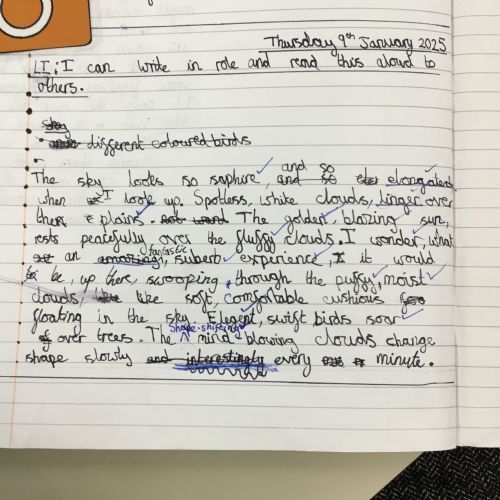 Thursday 9th January 2025
LI: I can write in role and read this aloud to
others.
Sky
different coloured birds
and so
The sky looks so saphire, and so elongated
when I look up. Spotless, white clouds, linger over
there plains. The golden, blazing sun,
rests peacefully over the fluffy clouds. I wonder, what
fantastic
an amazing, suberb experience, it would
be, up there, swooping through the puffy, moist
clouds, like soft, comfortable cushions
floating in the sky. Elegent, swift birds soar
shape-shifting
over trees. The mind blowing clouds change
shape slowly and interestingly every minute.